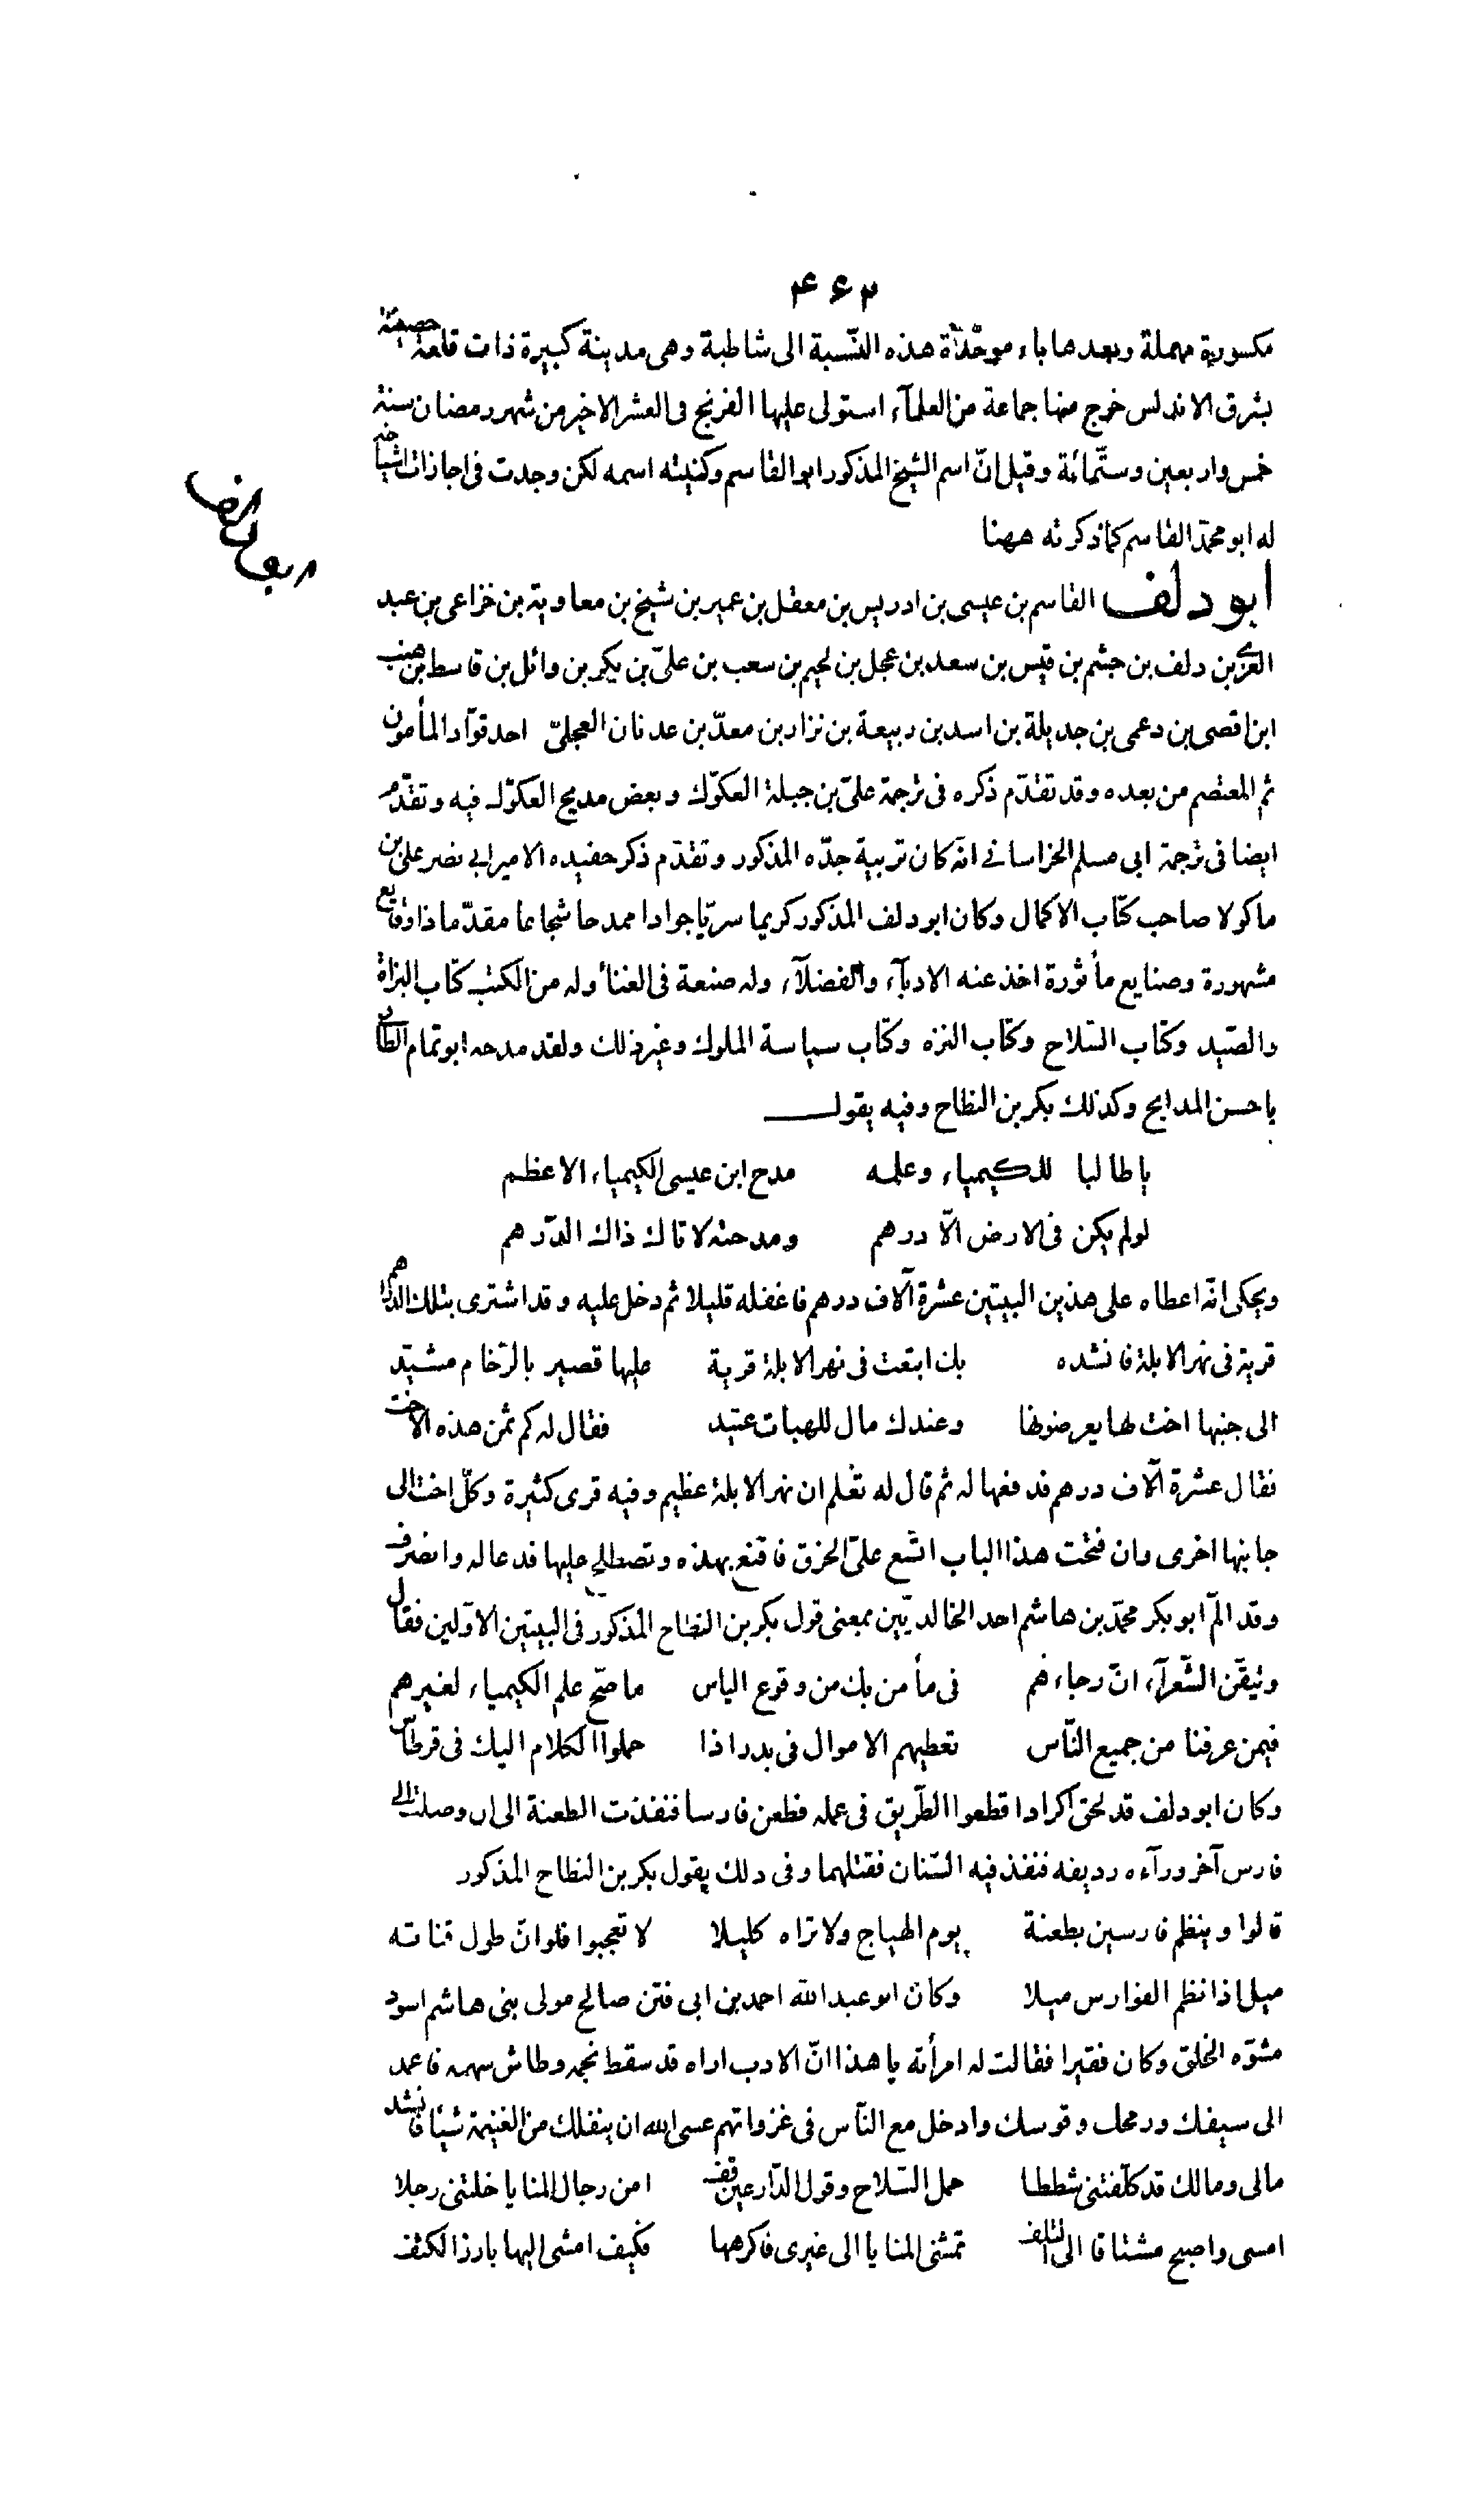 ۴۶۲
مكسورة مهملة وبعدها باء موحّدة هذه النّسبة الى شاطبة وهى مدينة كبيرة ذات قلعة حصينة
بشرق الاندلس خرج منها جماعة من العلمآء استولى عليها الفرنج فى العشر الاخير من شهر رمضان سنة
خمس واربعين وستّمائة وقيل انّ اسم الشيخ المذكور ابو القاسم وكنيته اسمه لكن وجدت فى اجازات اشياخه
له ابو محمّد القاسم كما ذكرته ههنا
ابو دلف القاسم بن عيسى بن ادريس بن معقل بن عمير بن شيخ بن معاوية بن خزاعى بن عبد
العزى بن دلف بن جشم بن قيس بن سعد بن عجل بن لجيم بن سعب بن علىّ بن بكر بن وائل بن قاسط بن هنب
ابن اقصى بن دعمى بن جديلة بن اسد بن ربيعة بن نزار بن معدّ بن عدنان العجلىّ احد قوّاد المأمون
ثم المعتصم من بعده وقد تقدّم ذكره فى ترجمة علىّ بن جبلة العكوّك وبعض مديح العكوّك فيه وتقدّم
ايضا فى ترجمة ابى مسلم الخراسانى انّه كان تربية جدّه المذكور وتقدّم ذكر حفيده الامير ابى نصر على بن
ماكولا صاحب كتاب الاكمال وكان ابو دلف المذكور كريما سريّا جوادا ممدحا شجاعا مقدّما ذا وقايع
مشهورة وصنايع مأثورة اخذ عنه الادبآء والفضلآء وله صنعة فى الغناء وله من الكتب كتاب البزاة
والصّيد وكتاب السّلاح وكتاب النزه وكتاب سياسة الملوك وغير ذلك ولقد مدحه ابو تمام الطائى
باحسن المدايح وكذلك بكر بن النطاح وفيه يقول
يا طالبا للكيمياء وعلمه مدح ابن عيسى الكيمياء الاعظم
لو لم يكن فى الارض الّا درهم ومدحته لاتاك ذاك الدّرهم
ويحكى انّه اعطاه على هذين البيتين عشرة آلاف درهم فاغفله قليلا ثم دخل عليه وقد اشترى بتلك الدّراهم
قرية فى نهر الابلة فانشده بك ابتعت فى نهر الابلة قرية عليها قصير بالرّخام مشيّد
الى جنبها اخت لها يعرضونها وعندك مال للهبات عتيد فقال له كم ثمن هذه الاخت
فقال عشرة آلاف درهم فدفعها له ثم قال له تعلم ان نهر الابلة عظيم وفيه قرى كثيرة وكلّ اخت الى
جانبها اخرى وان فتحت هذا الباب اتّسع علىّ الخرق فاقنع بهذه ونصطلح عليها فدعا له وانصرف
وقد المّ ابو بكر محمّد بن هاشم احد الخالديّين بمعنى قول بكر بن النطاح المذكور فى البيتين الاوّلين فقال
وتيقّن الشّعرآء انّ رجاءهم فى مأمن بك من وقوع الياس ما صحّ علم الكيمياء لغيرهم
فيمن عرفنا من جميع النّاس تعطيهم الاموال فى بدر اذا حملوا الكلام اليك فى قرطاس
وكان ابو دلف قد لحق اكرادا قطعوا الطّريق فى عمله فطعن فارسا فنفذت الطعنة الى ان وصلت الى
فارس آخر ورآءه رديفه فنفذ فيه السّنان فقتلهما وفى ذلك يقول بكر بن النطاح المذكور
قالوا وينظم فارسين بطعنة يوم الهياج ولا تراه كليلا لا تعجبوا فلو انّ طول قناته
ميل اذا نظم الفوارس ميلا وكان ابو عبد الله احمد بن ابى فنن صالح مولى بنى هاشم اسود
مشوّه الخلق وكان فقيرا فقالت له امرأته يا هذا انّ الادب اراه قد سقط نجمه وطاش سهمه فاعمد
الى سيفك ورمحك وقوسك وادخل مع النّاس فى غزواتهم عسى الله ان ينفلك من الغنيمة شيئا فانشد
مالى ومالك قد كلّفتنى شططا حمل السّلاح وقول الدّارعين قف امن رجال المنايا خلتنى رجلا
امسى واصبح مشتاقا الى التلف تمشى المنايا الى غيرى فاكرهها فكيف امشى اليها بارز الكتف